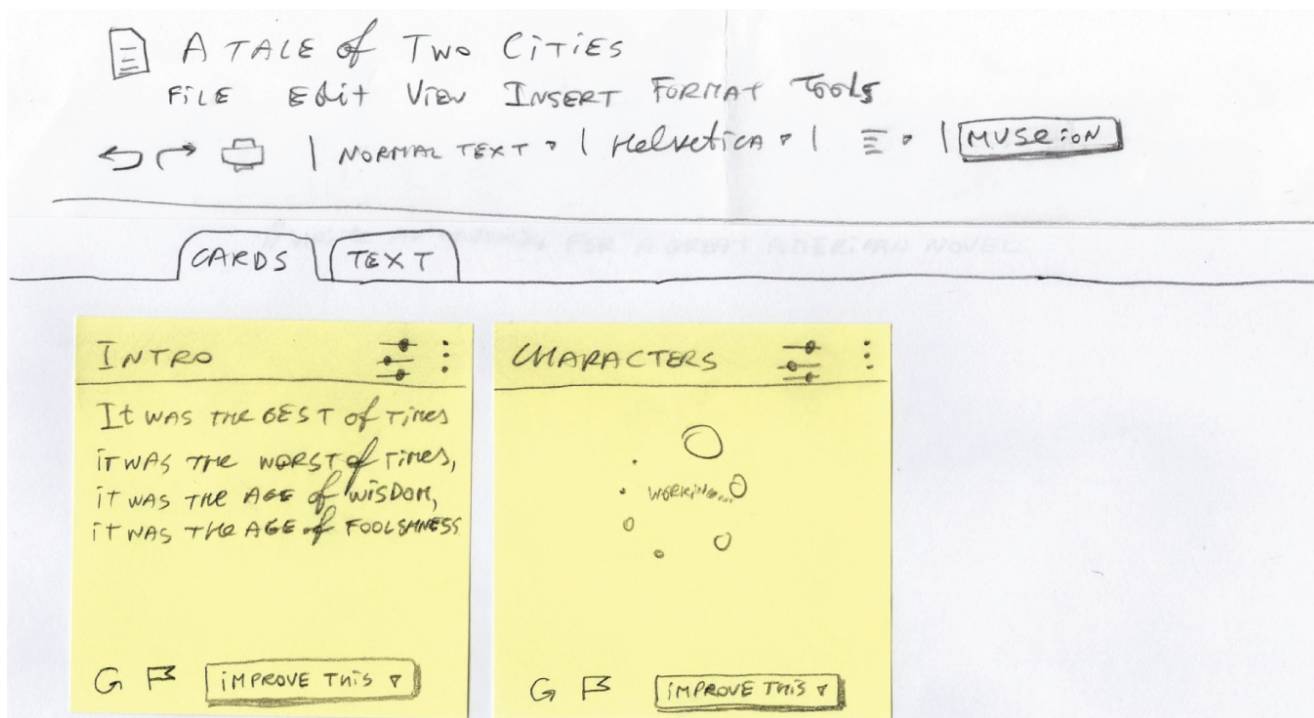 A TALE of Two CiTiES
FiLE Edit ViEW INSERT FORMAT Tools
| NORMAL TEXT | Helvetica | | MUSEiON
CARDS TEXT
INTRO
It WAS THE BEST of TiMES
iT WAS THE WORST of TiMES,
iT WAS THE AGE of WiSDOM,
iT WAS THE AGE of FOOLSHNESS
G iMPROVE THiS
CHARACTERS
WORKiNG...
G iMPROVE THiS